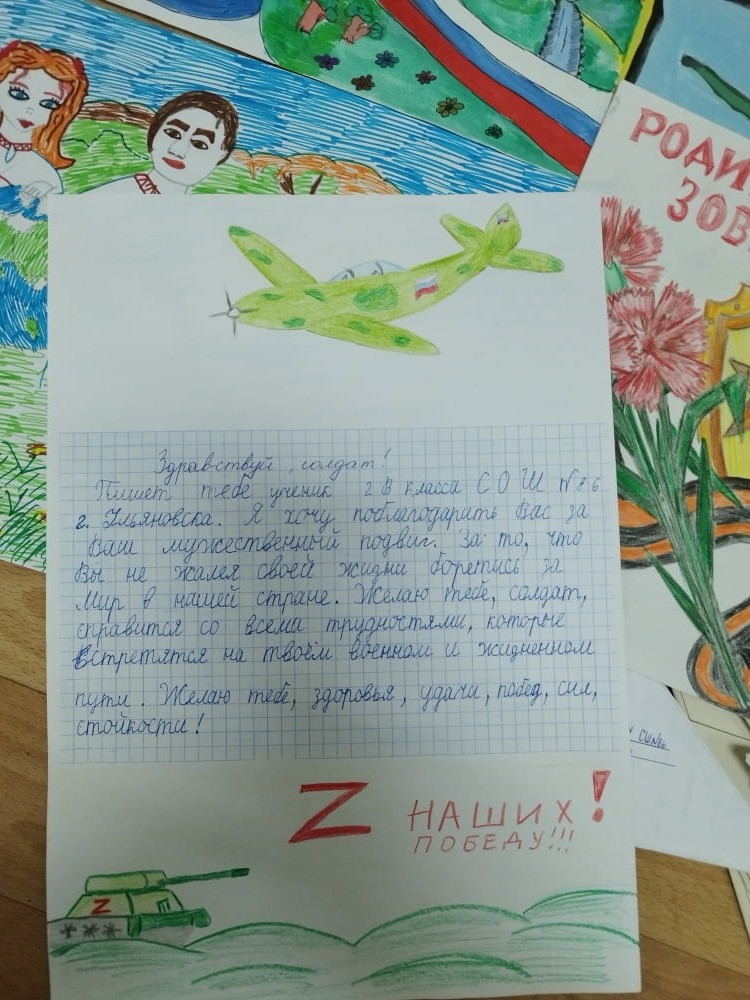 Здравствуй, солдат!
Пишет тебе ученик 2 В класса СОШ №86
г. Ульяновска. Я хочу поблагодарить Вас за
Ваш мужественный подвиг. За то, что
Вы не жалея своей жизни боретись за
Мир в нашей стране. Желаю тебе, солдат,
справится со всеми трудностями, которые
встретятся на твоём военном и жизненном
пути. Желаю тебе, здоровья, удачи, побед, сил,
стойкости!
Z НАШИХ!
ПОБЕДУ!!!
Z
РОДИ
ЗОВ
СШ№86